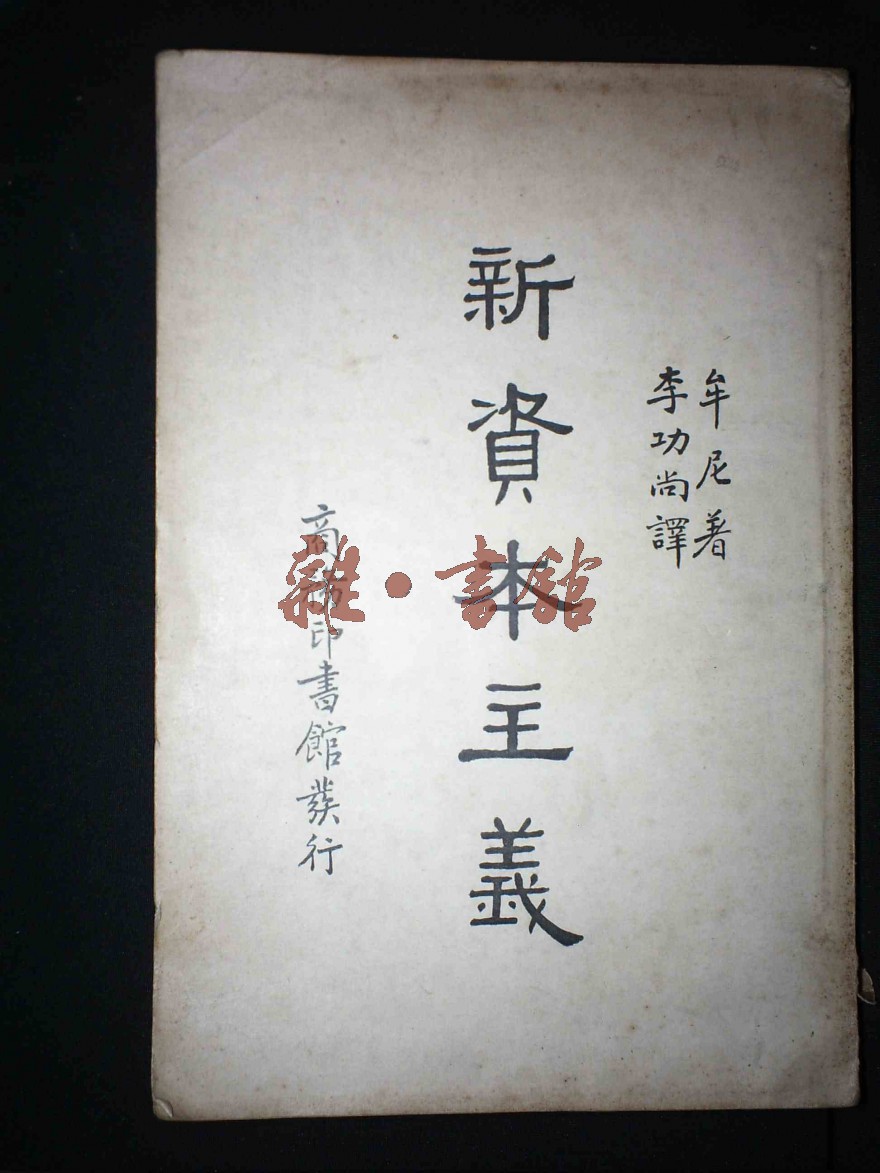 牟尼著
李功尚譯
新資本主義
商務印書館發行
雜·書館